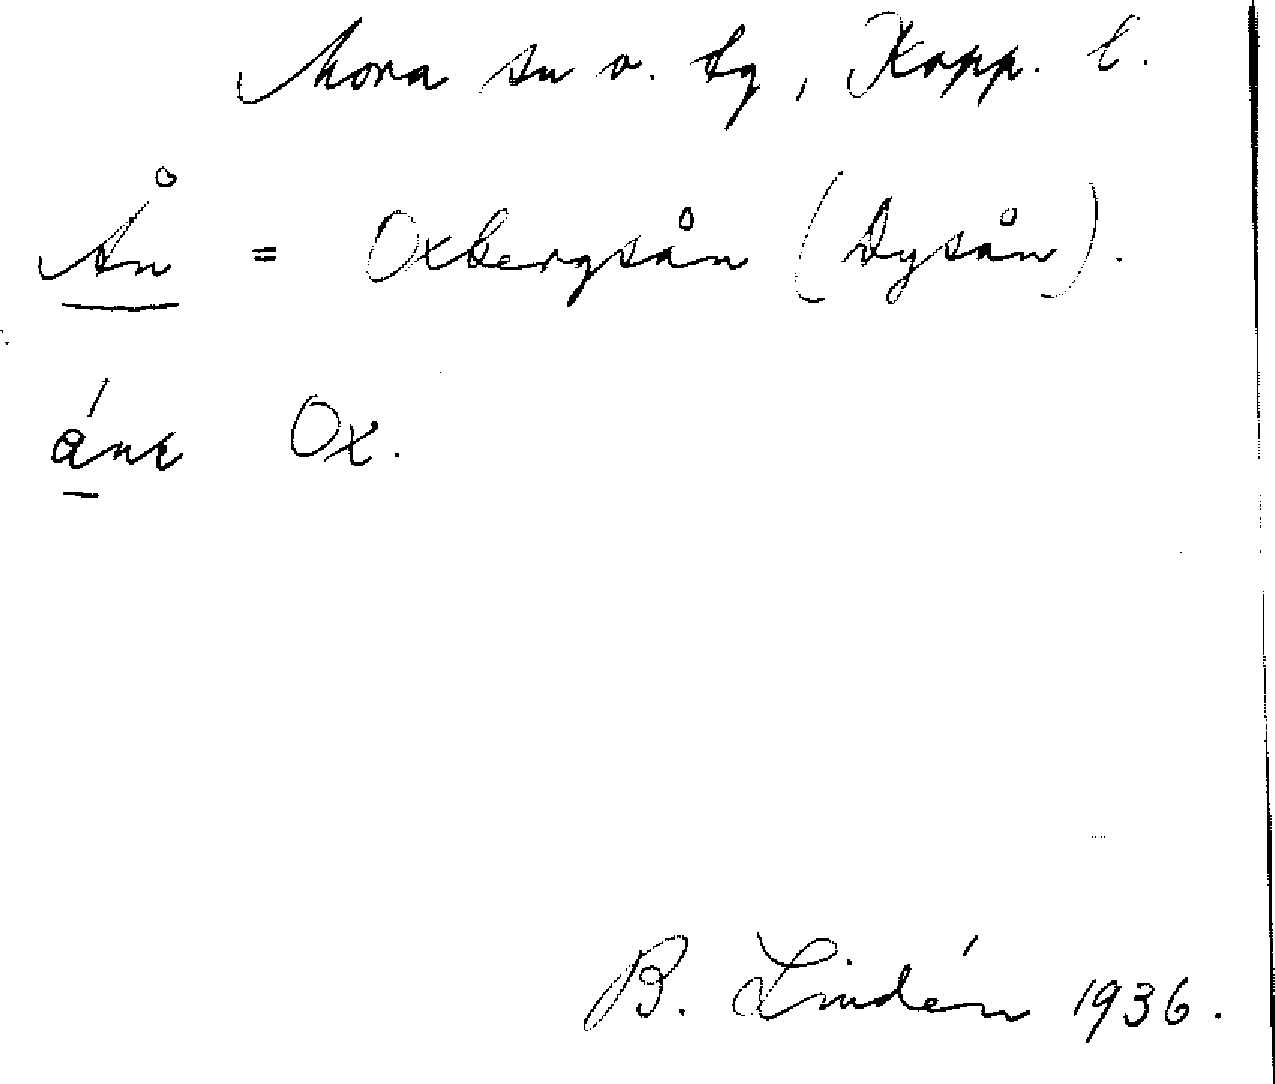 Mora sn o. tg, Kopp. l.
Ån = Oxbergsån (Dysån).
Ox.
B. Lindén 1936.